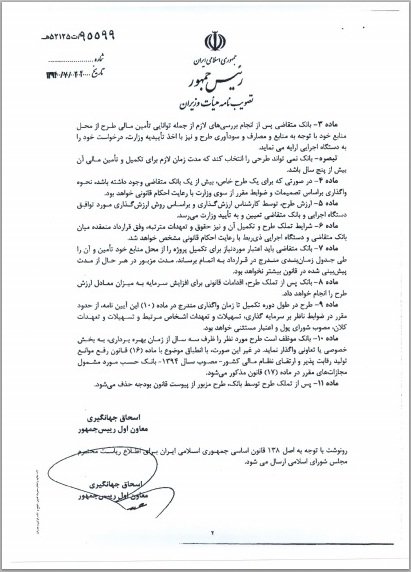 ۹۵۵۹۹/ت۵۲۱۲۵هـ
شماره
تاریخ
جمهوری اسلامی ایران
رئیس جمهور
تصویب نامه هیأت وزیران
ماده ۳- بانک متقاضی پس از انجام بررسی‌های لازم از جمله توانایی تأمین مالی طرح از محل
منابع خود با توجه به منابع و مصارف و سودآوری طرح و نیز با اخذ تأییدیه وزارت، درخواست خود را
به دستگاه اجرایی ارایه می نماید.
تبصره- بانک نمی تواند طرحی را انتخاب کند که مدت زمان لازم برای تکمیل و تأمین مالی آن
بیش از پنج سال باشد.
ماده ۴- در صورتی که برای یک طرح خاص، بیش از یک بانک متقاضی وجود داشته باشد، نحوه
واگذاری براساس تصمیمات و ضوابط مقرر از سوی وزارت با رعایت احکام قانونی خواهد بود.
ماده ۵- ارزش طرح، توسط کارشناس ارزش‌گذاری و براساس روش ارزش‌گذاری مورد توافق
دستگاه اجرایی و بانک متقاضی تعیین و به تأیید وزارت می‌رسد.
ماده ۶- شرایط تملک طرح و تکمیل آن و نیز حقوق و تعهدات مترتبه، وفق قرارداد منعقده میان
بانک متقاضی و دستگاه اجرایی ذی‌ربط با رعایت احکام قانونی مشخص خواهد شد.
ماده ۷- بانک متقاضی باید اعتبار موردنیاز برای تکمیل پروژه را از محل منابع خود تأمین و آن را
طی جدول زمان‌بندی مندرج در قرارداد به اتمام برساند. مدت مزبور در هر حال از مدت
پیش‌بینی شده در قانون بیشتر نخواهد بود.
ماده ۸- بانک پس از تملک طرح، اقدامات قانونی برای افزایش سرمایه به میزان معادل ارزش
طرح را انجام خواهد داد.
ماده ۹- طرح در طول دوره تکمیل تا زمان واگذاری مندرج در ماده (۱۰) این آیین نامه، از حدود
مقرر در ضوابط ناظر بر سرمایه گذاری، تسهیلات و تعهدات اشخاص مرتبط و تسهیلات و تعهدات
کلان، مصوب شورای پول و اعتبار مستثنی خواهد بود.
ماده ۱۰- بانک موظف است طرح مورد نظر را ظرف سه سال از زمان بهره برداری، به بخش
خصوصی یا تعاونی واگذار نماید. در غیر این صورت، با انطباق موضوع با ماده (۱۶) قانون رفع موانع
تولید رقابت پذیر و ارتقای نظام مالی کشور-مصوب سال ۱۳۹۴- بانک حسب مورد مشمول
مجازات‌های مقرر در ماده (۱۷) قانون مذکور می‌شود.
ماده ۱۱- پس از تملک طرح توسط بانک، طرح مزبور از پیوست قانون بودجه حذف می‌شود.
اسحاق جهانگیری
معاون اول رییس‌جمهور
رونوشت با توجه به اصل ۱۳۸ قانون اساسی جمهوری اسلامی ایران برای اطلاع ریاست محترم
مجلس شورای اسلامی ارسال می شود.
اسحاق جهانگیری
معاون اول رییس‌جمهور
۲